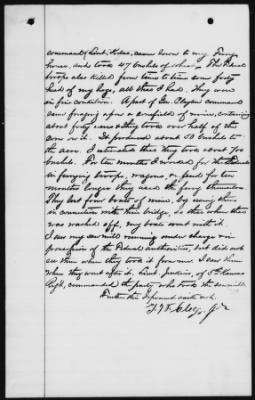 command of Lieut. , came down to my
house, and took 47 bushels of . The Federal
troops also killed from time to time some forty
head of my hogs, all that I had. They were
in fine condition. A part of Gen Clayton's command
came foraging upon a cornfield of mine, containing
about forty acres & they took over half of the
corn in it. It produced about 50 bushels to
the acre. I estimated that they took about 700
bushels. For ten months I worked for the Federals
in ferrying troops, wagons, or feed for ten
months longer they used the ferry themselves.
They lost four boats of mine, by using them
in connection with their bridge, so that when that
was washed off, my boats went with it.
I saw my saw mill running under charge or in
possession of the Federal authorities, but did not
see them when they took it from me. I saw them
when they went after it. Lieut. Jenkins, of 5th Kansas
Regt, commanded the party who took the saw mill.
Further this Deponent saith not.